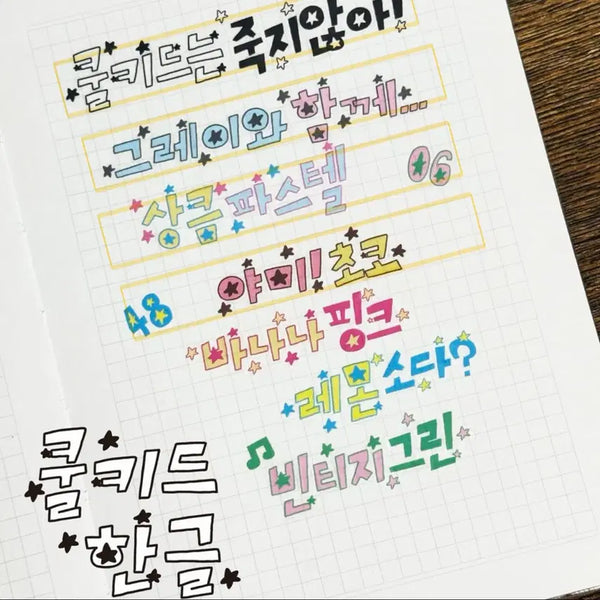 쿨키드는 죽지않아!
그레이와 함께...
상큼 파스텔 06
48 야미! 초코
바나나 핑크
레몬 소다?
빈티지 그린
쿨키드
한글